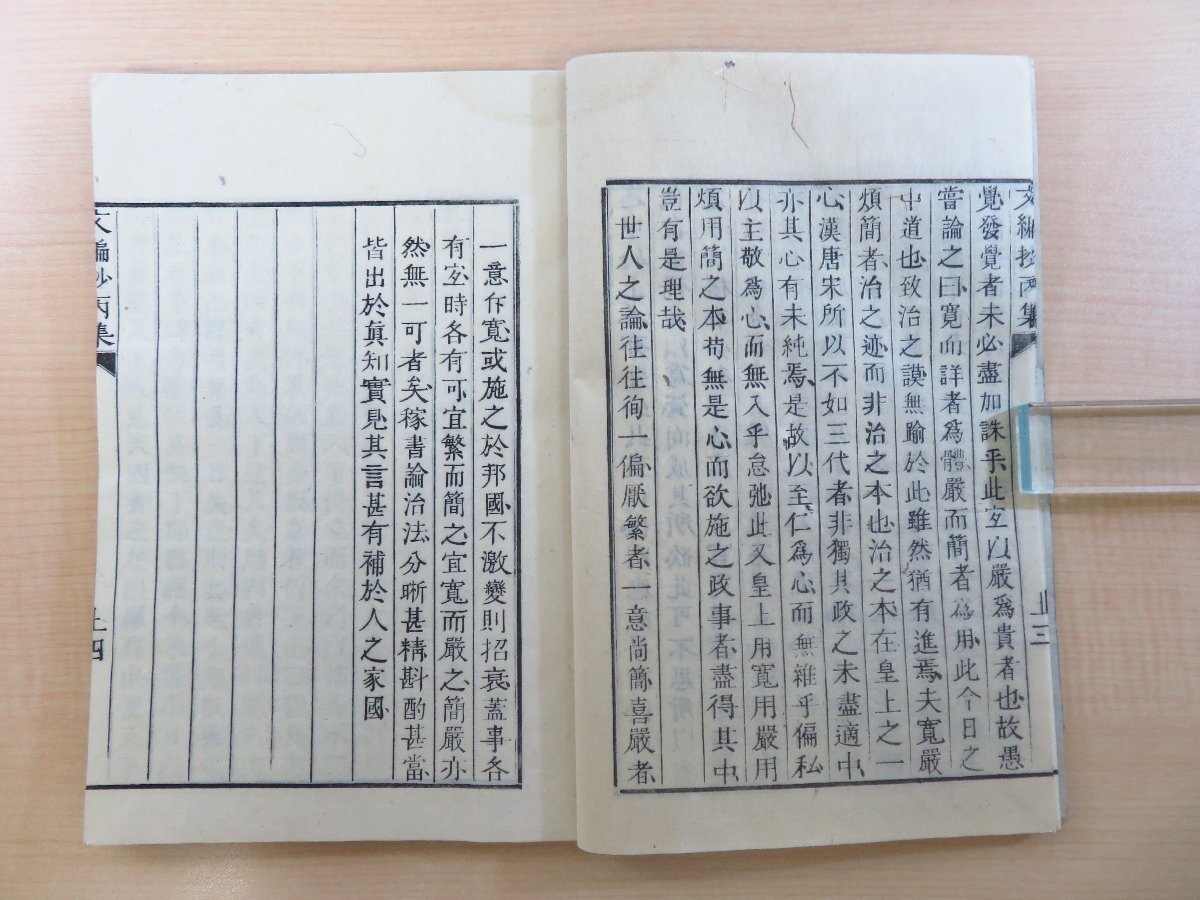 文編抄丙集
上三
覺發覺者未必盡加誅乎此宐以嚴爲貴者也故愚
嘗論之曰寬而詳者爲體嚴而簡者爲用此今日之
中道也致治之謨無踰於此雖然猶有進焉夫寬嚴
煩簡者治之迹而非治之本也治之本在皇上之一
心漢唐宋所以不如三代者非獨其政之未盡適中
亦其心有未純焉是故以至仁爲心而無雜乎偏私
以主敬爲心而無入乎怠弛此又皇上用寬用嚴用
煩用簡之本苟無是心而欲施之政事者盡得其中
豈有是理哉
世人之論往往徇一偏厭繁者一意尚簡喜嚴者
一意斥寬或施之於邦國不激變則招衰蓋事各
有宐時各有可宜繁而簡之宜寬而嚴之簡嚴亦
然無一可者矣稼書論治法分晰甚精斟酌甚當
皆出於眞知實見其言甚有補於人之家國
文編抄丙集
上四